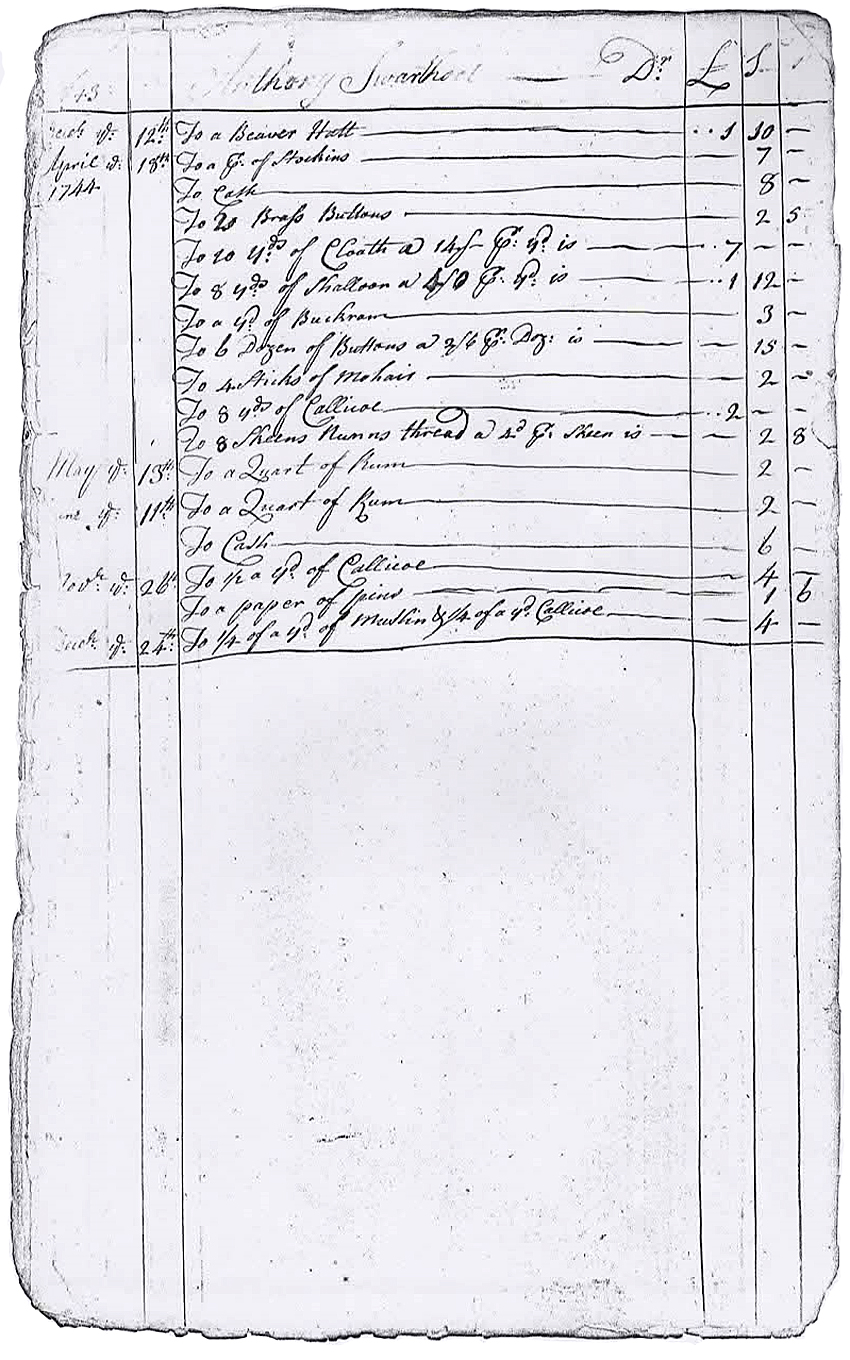 Anthony Swarthoot — Dr. £ S
12th To a Beaver Hatt — 1 10 –
April ye. 18th To a Pr. of Stockins — 7 –
1744 To Cash — 8 –
To 20 Brass Buttons — 2 5
To 10 yds of Cloath a 14s/- Pr. yd. is — 7 – –
To 8 yds of Shalloon a 4s/0 Pr. yd. is — 1 12 –
To a yd. of Buckram — 3 –
To 6 Dozen of Buttons a 2s/6 Pr. Doz: is — 15 –
To 4 Sticks of Mohair — 2 –
To 8 yds of Callicoe — 2 – –
To 8 Skeens Nunns thread a 4d Pr. Skeen is — 2 8
May ye. 13th To a Quart of Rum — 2 –
ye. 11th To a Quart of Rum — 2
To Cash — 6 –
ye. 26th To 1/2 a yd. of Callicoe — 4 –
To a paper of pins — 1 6
ye. 24th To 1/4 of a yd. of Muslin & 1/4 of a yd. Callicoe — 4 –